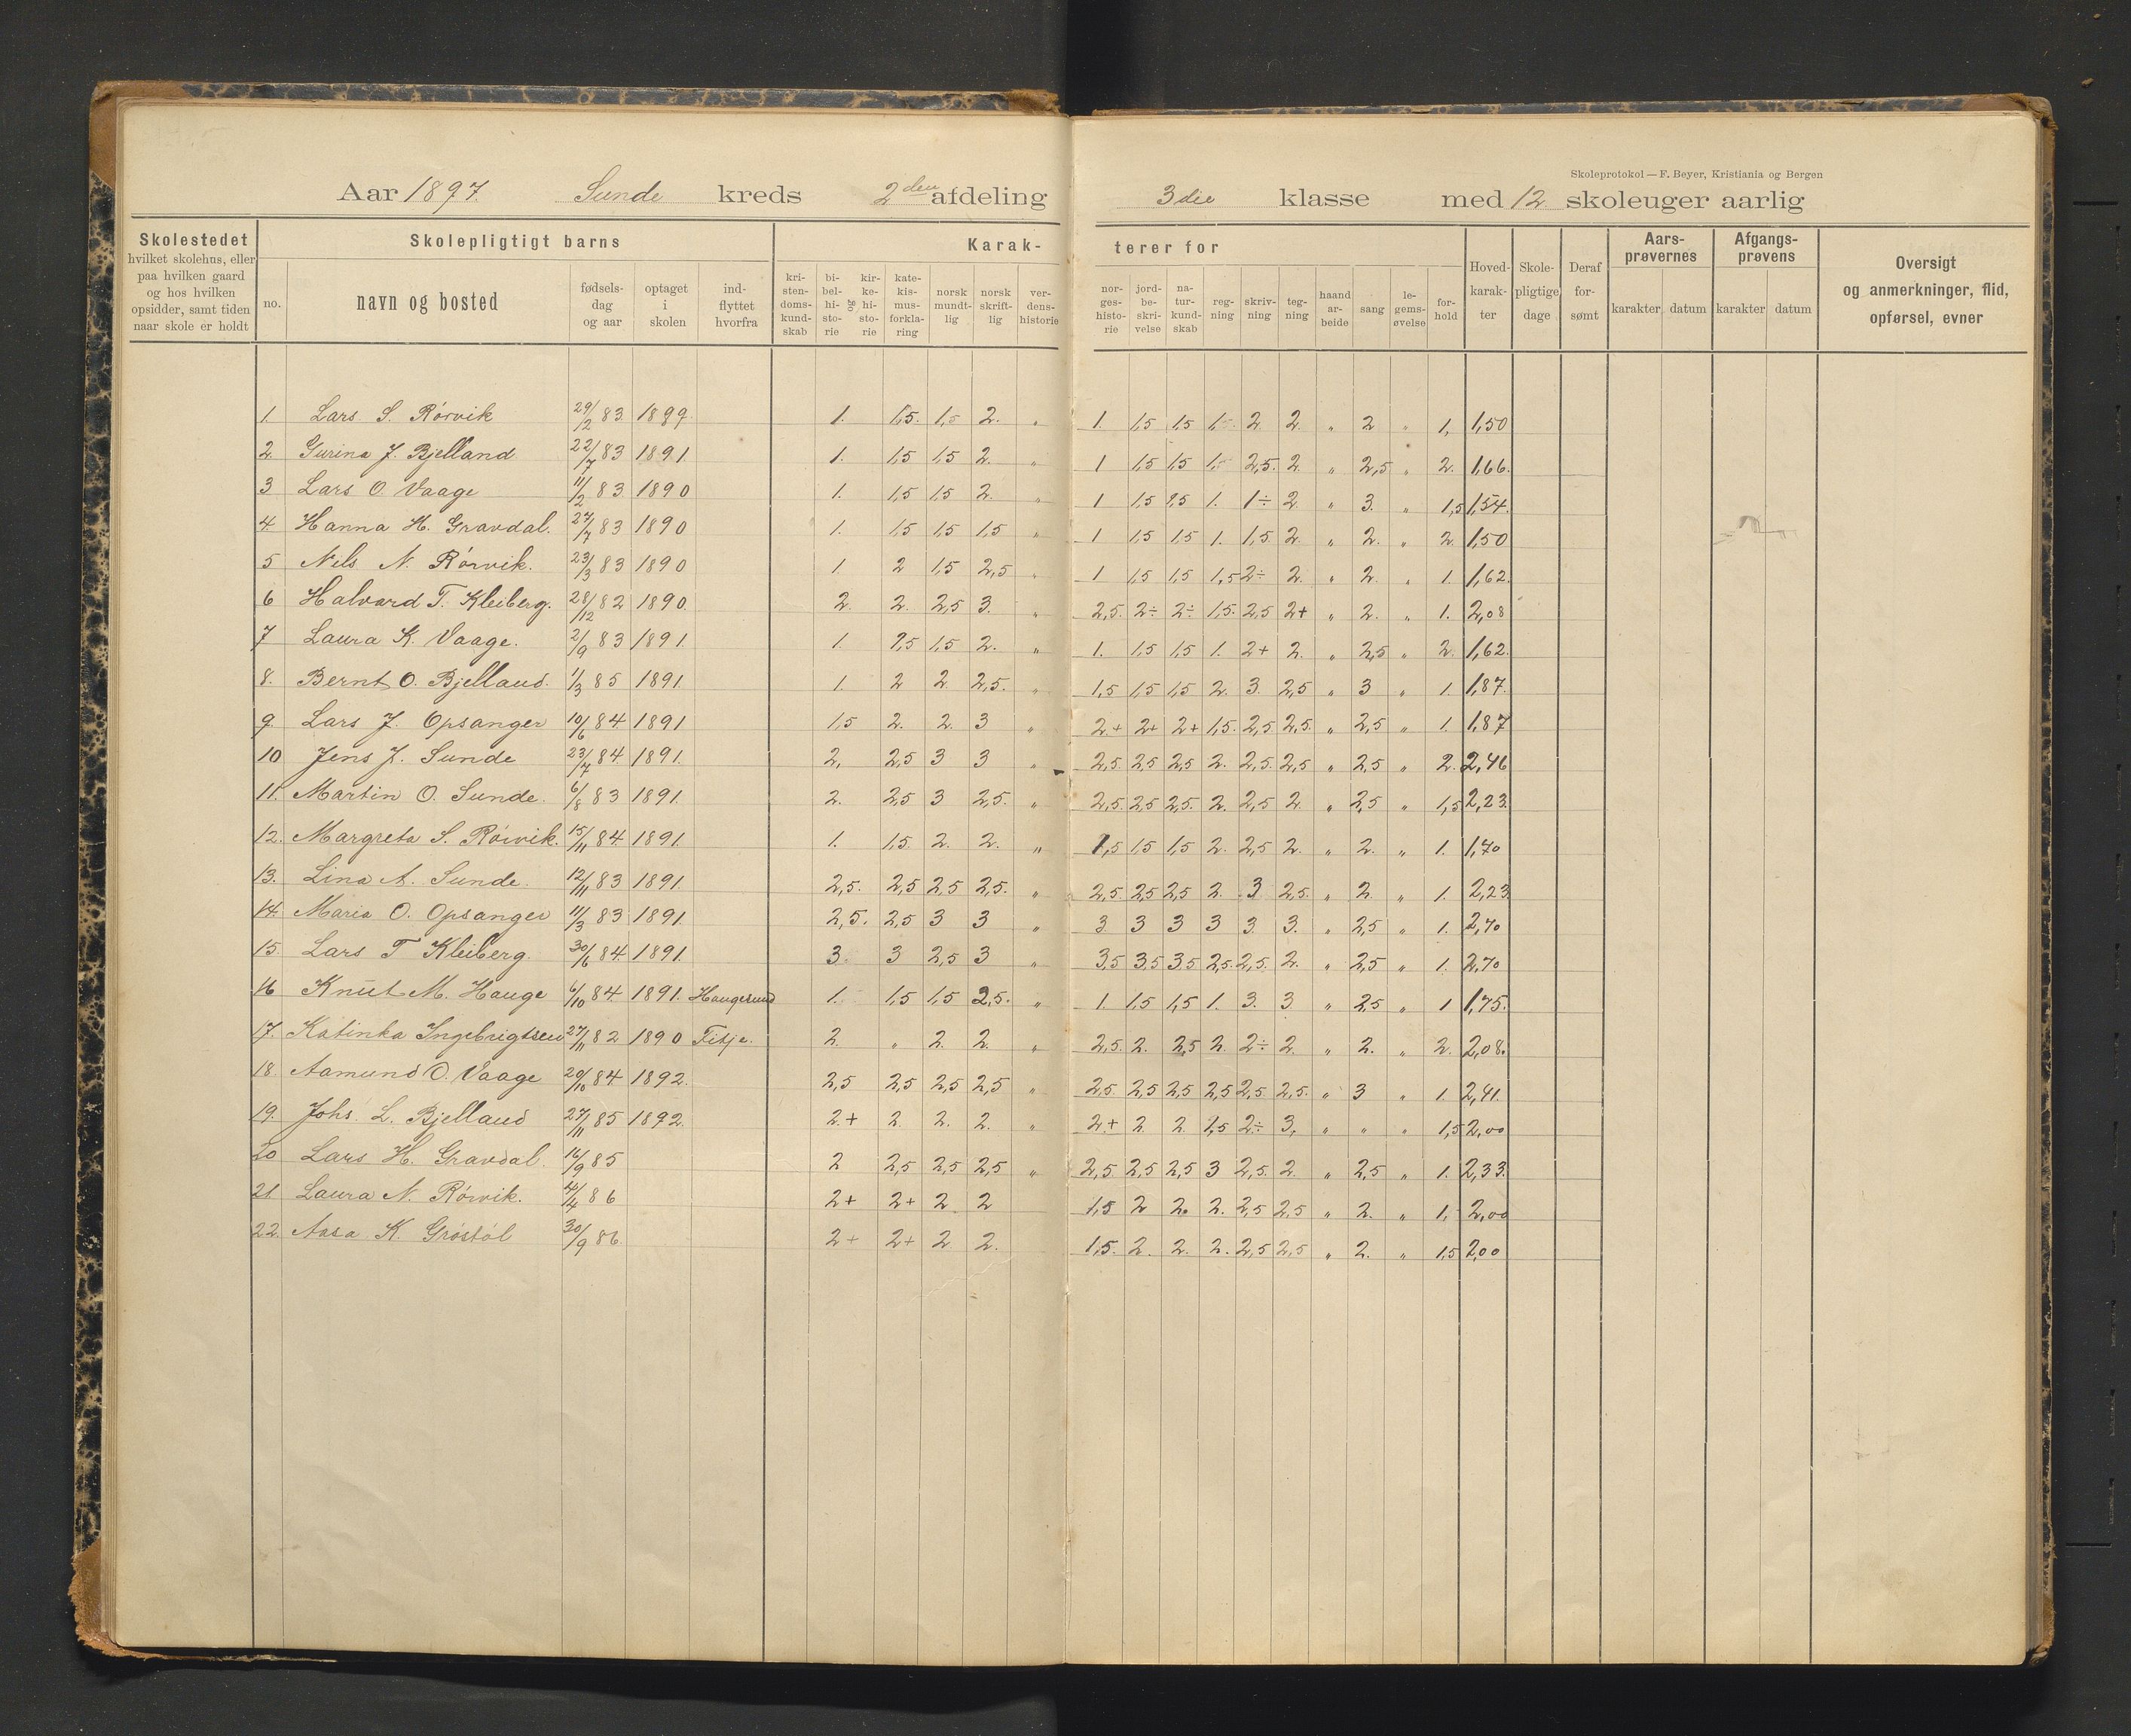 Skoleprotokol — F. Beyer, Kristiania og Bergen
Aar 1897. Sunde kreds 2den afdeling 3die klasse med 12 skoleuger aarlig
Skolestedet hvilket skolehus, eller paa hvilken gaard og hos hvilken opsidder, samt tiden naar skole er holdt
Skolepligtigt barns
no. navn og bosted fødsels-dag og aar optaget i skolen ind-flyttet hvorfra
Karak-terer for
kri-sten-doms-kund-skab bi-bel-hi-sto-rie og kir-ke-hi-sto-rie kate-kis-mus-forkla-ring norsk mundt-lig norsk skrift-lig ver-dens-historie
nor-ges-histo-rie jord-be-skri-velse na-tur-kund-skab reg-ning skriv-ning teg-ning haand ar-beide sang le-gems-øvelse for-hold
Hoved-karak-ter Skole-pligtige dage Deraf for-sømt
Aars-prøvernes karakter datum
Afgangs-prøvens karakter datum
Oversigt og anmerkninger, flid, opførsel, evner
1. Lars S. Rørvik 29/2 83. 1889. 1. 1,5. 1,5 2. " 1. 1,5 1,5 1,5. 2 2. " 2 " 1, 1,50
2. Gurina J. Bjelland 22/7 83 1891. 1. 1,5 1,5 2. " 1 1,5 1,5 1,5 2,5. 2. " 2,5 " 2. 1,66.
3 Lars O. Vaage 11/2 83 1890 1. 1,5 1,5 2. " 1 1,5 1,5 1. 1÷ 2. " 3. " 1,5 1,54.
4. Hanna H. Gravdal. 27/7 83 1890 1. 1,5 1,5 1,5 " 1 1,5 1,5 1. 1,5. 2. " 2. " 2. 1,50
5 Nils N. Rørvik. 23/3 83 1890 1 2 1,5 2,5 " 1 1,5 1,5 1,5 2÷ 2. " 2. " 1. 1,62.
6 Halvard T. Kleiberg. 28/12 82 1890. 2. 2. 2,5 3. " 2,5. 2÷ 2÷ 1,5. 2,5 2+ " 2. " 1. 2,08
7 Laura K. Vaage. 2/9 83 1891. 1. 1,5 1,5 2. " 1. 1,5 1,5 1. 2+ 2. " 2,5 " 2. 1,62.
8. Bernt O. Bjelland. 1/3 85 1891. 1. 2 2. 2,5. " 1,5 1,5 1,5 2. 3. 2,5 " 3 " 1. 1,87.
9. Lars J. Opsanger 10/6 84. 1891 1,5 2. 2. 3 " 2+ 2+ 2+ 1,5. 2,5 2,5. " 2,5 " 1. 1,87
10 Jens J. Sunde 23/7 84. 1891. 2, 2,5 3 3 " 2,5 2,5 2,5 2. 2,5. 2,5 " 2,5 " 2. 2,46
11. Martin O. Sunde. 6/8 83 1891. 2. 2,5 3 2,5. " 2,5. 2,5 2,5. 2. 2,5 2. " 2,5 " 1,5 2,23.
12. Margreta S. Rørvik. 15/11 84 1891. 1. 1,5. 2. 2. " 1,5 1,5 1,5 2. 2,5 2. " 2. " 1. 1,70
13. Lina A. Sunde. 12/11 83 1891. 2,5. 2,5 2,5 2,5. " 2,5. 2,5 2,5 2. 3 2,5. " 2. " 1. 2,23.
14. Maria O. Opsanger 11/3 83 1891. 2,5. 2,5 3 3 " 3 3 3 3 3. 3. " 2,5 " 1. 2,70
15. Lars T Kleiberg. 30/6 84. 1891. 3. 3 2,5 3 " 3,5 3,5 3,5 2,5. 2,5. 2. " 2,5 " 1. 2,70
16 Knut M. Hauge 6/10 84 1891. Haugesund 1. 1,5 1,5 2,5. " 1. 1,5 1,5 1. 3. 3 " 2,5 " 1 1,75.
17. Katinka Ingebrigtsen 27/11 82 1890 Fitje. 2. " 2. 2. " 2,5. 2. 2,5 2. 2÷ 2. " 2. " 2. 2,08.
18. Aamund O. Vaage 20/10 84 1892. 2,5 2,5 2,5 2,5 " 2,5. 2,5 2,5 2,5 2,5 2,5. " 3 " 1. 2,41.
19. Johs. L. Bjelland 27/11 85 1892. 2.+ 2. 2. 2. " 2.+ 2. 2. 1,5 2÷ 3, " " " 1,5 2,00
20 Lars H. Gravdal. 16/9 85 2 2,5 2,5 2,5 " 2,5. 2,5 2,5 3 2,5. 2. " 2,5 " 1. 2,33.
21. Laura N. Rørvik. 4/4 86 2+ 2+ 2. 2 1,5 2 2. 2. 2,5 2,5 " 2. " 1, 2,00
22. Aasa K. Grøstøl 30/9 86. 2+ 2+ 2 2. 1,5. 2. 2. 2. 2,5 2,5 " 2. " 1,5 2,00